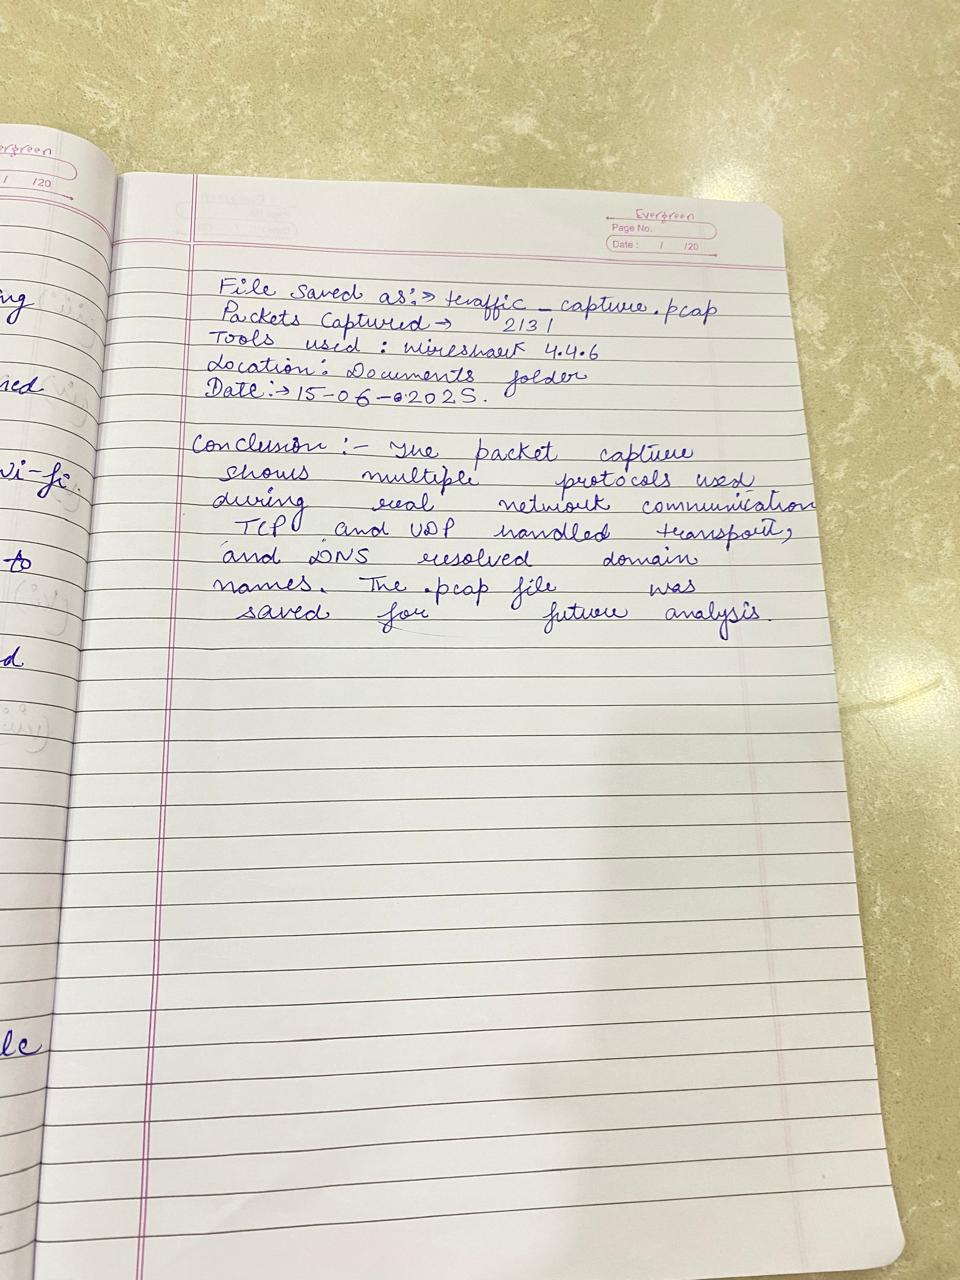 ergreen
/ /20
ng
ned
Wi-fi.
to
d
le
Evergreen
Page No.
Date : / /20
File saved as:→ traffic_capture.pcap
Packets Captured → 2131
Tools used : Wireshark 4.4.6
Location: Documents folder
Date:→ 15-06-2025.
Conclusion :- The packet capture
shows multiple protocols used
during real network communication
TCP and UDP handled transport,
and DNS resolved domain
names. The .pcap file was
saved for future analysis.